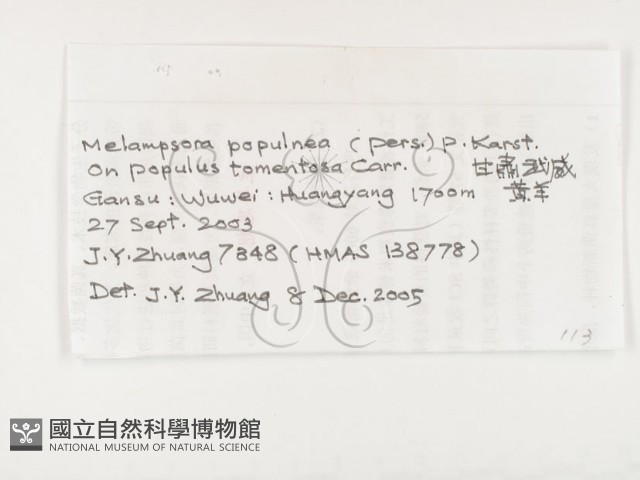 Melampsora populnea (Pers.) P. Karst.
On Populus tomentosa Carr. 甘肅武威
Gansu : Wuwei : Huangyang 1700m 黄羊
27 Sept. 2003
J.Y. Zhuang 7848 (HMAS 138778)
Det. J.Y. Zhuang 8 Dec. 2005
113
國立自然科學博物館
NATIONAL MUSEUM OF NATURAL SCIENCE